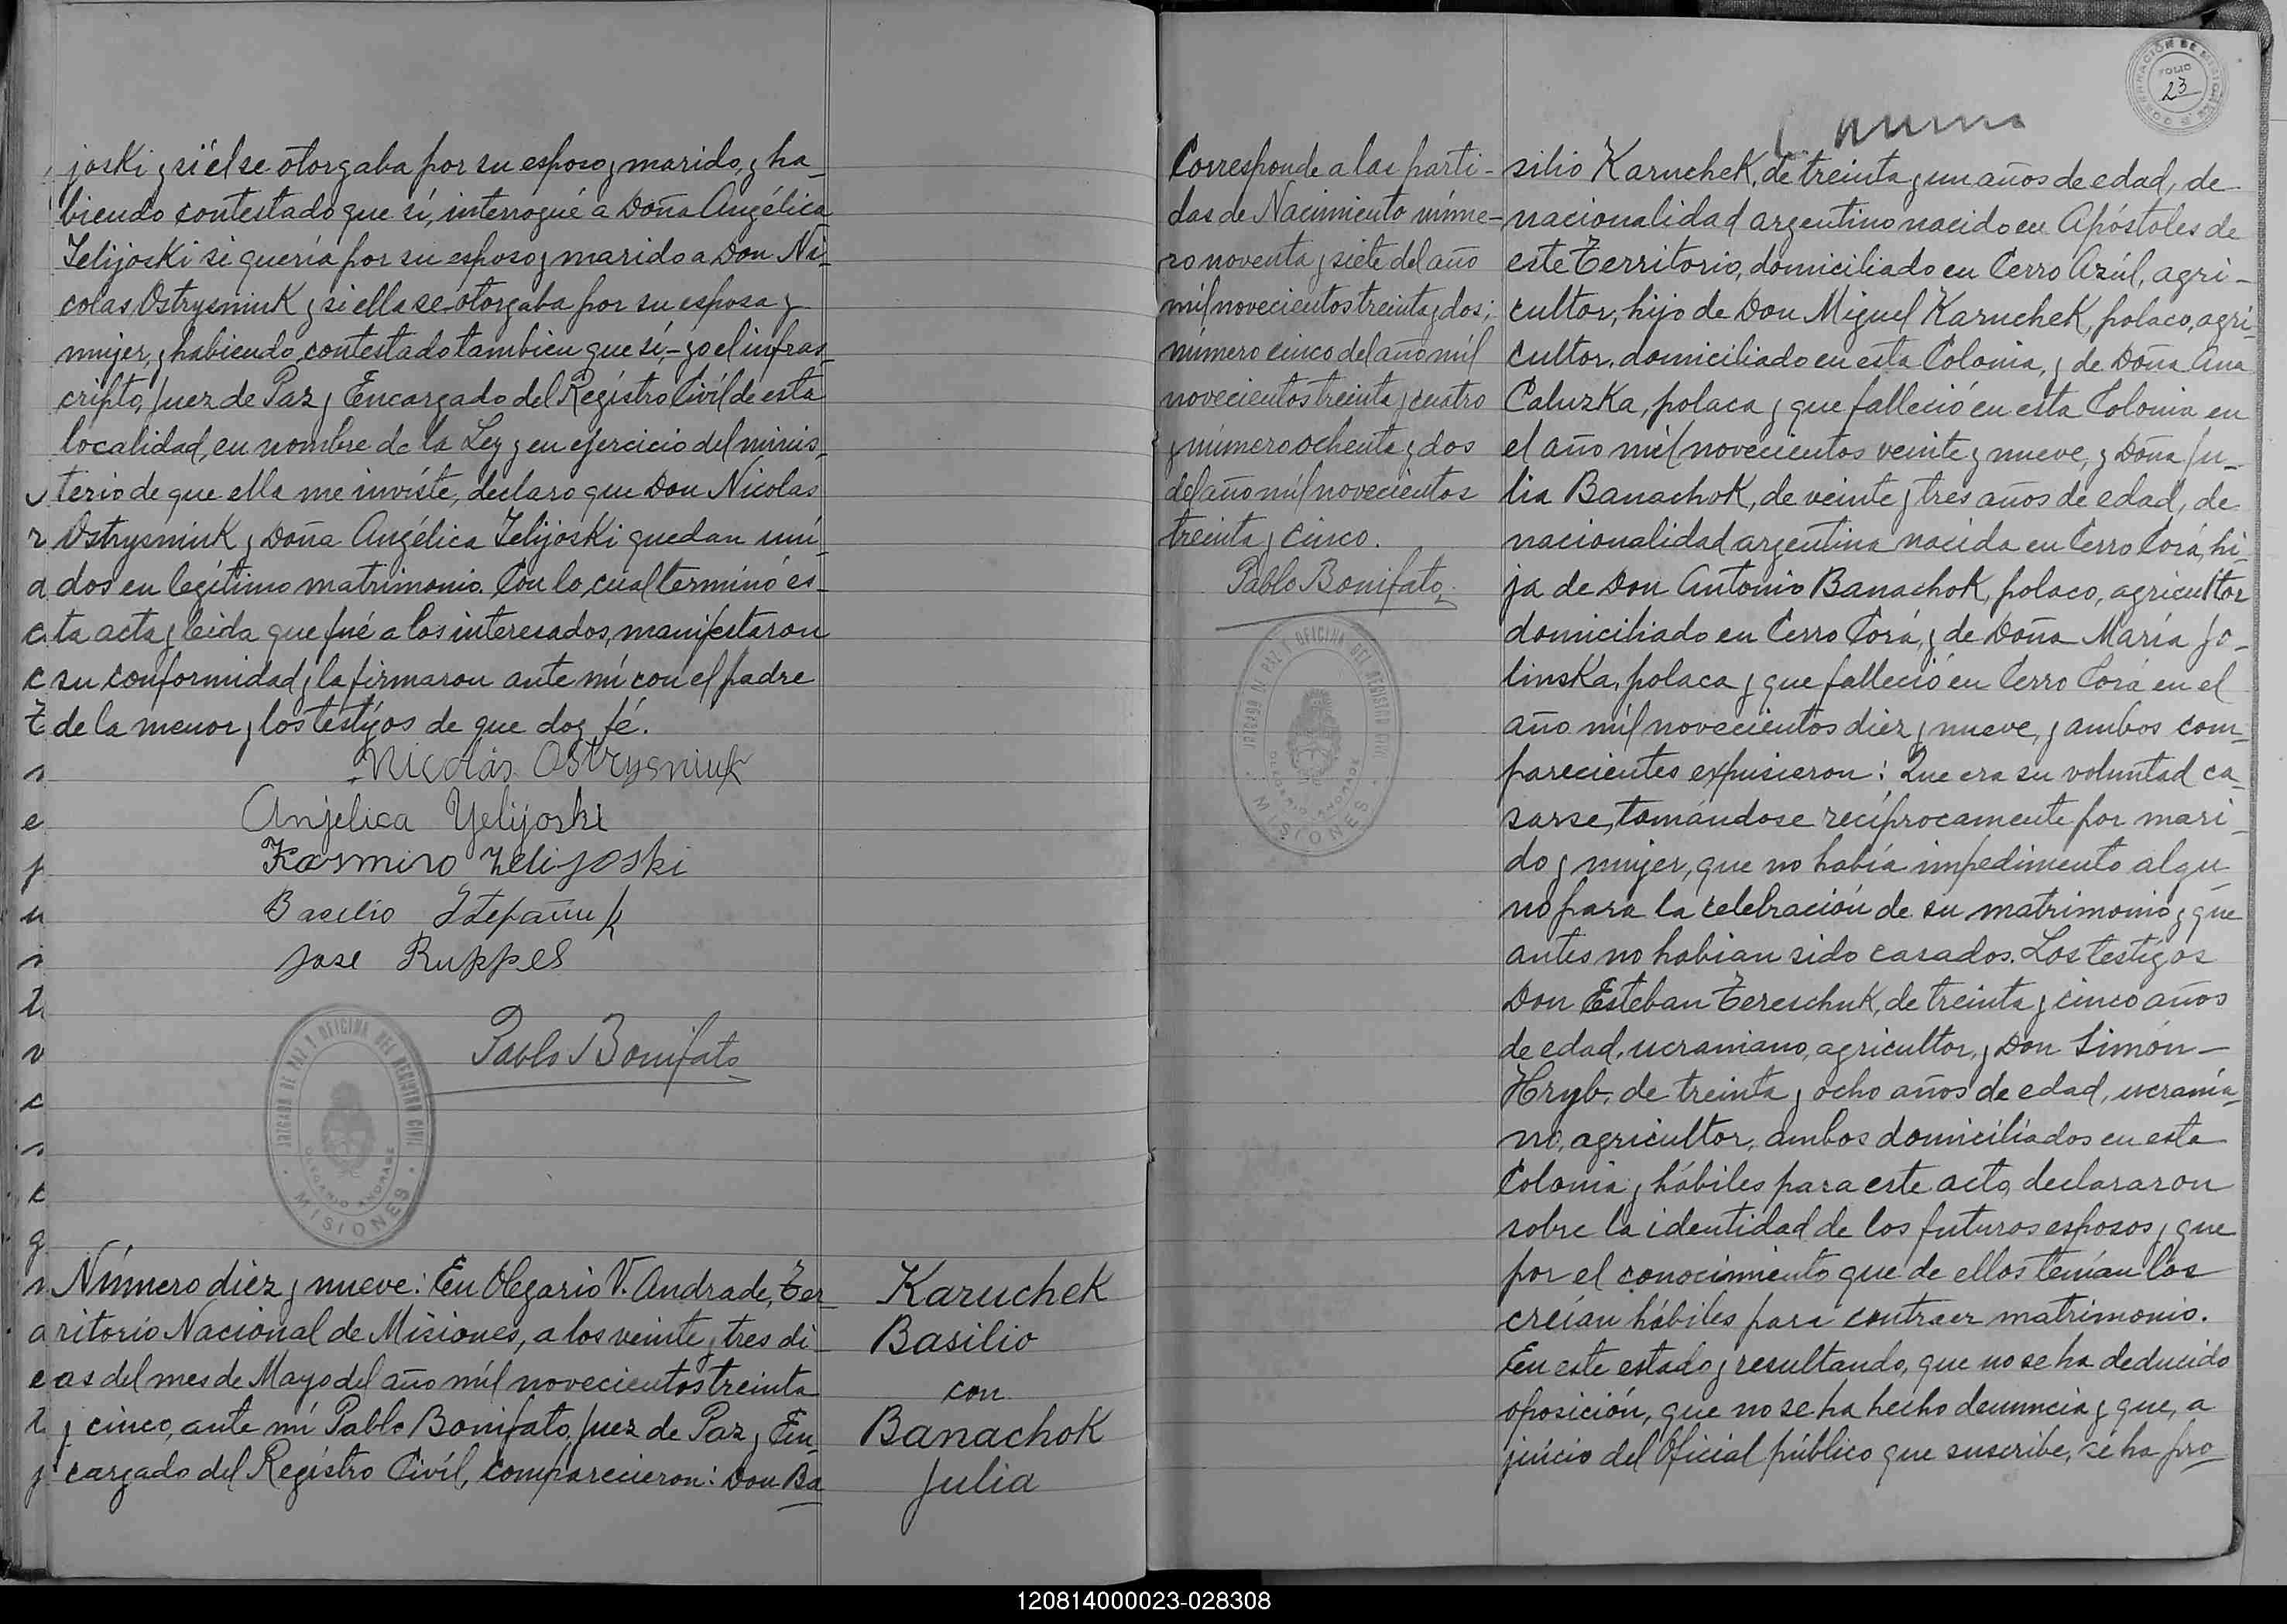 joski y si él se otorgaba por su esposo y marido, y ha_
biendo contestado que sí, interrogué a Doña Angélica
Zelijoski si quería por su esposo y marido a Don Ni_
colas Ostrysniuk y si ella se otorgaba por su esposa y
mujer, y habiendo contestado tambien que sí,- yo el infras_
cripto, Juez de Paz y Encargado del Registro Civil de esta
localidad, en nombre de la Ley y en ejercicio del minis_
terio de que ella me invíste, declaro que Don Nicolas
Ostrysniuk y Doña Angélica Zelijoski quedan uni_
dos en legítimo matrimonio. Con lo cual terminó es_
ta acta y leida que fué a los interesados, manifestaron
su conformidad y la firmaron ante mí con el padre
de la menor y los testigos de que doy fé.
Nicolás Ostrysniuk
Anjelica Yelijoski
Kasmiro Zelijoski
Basilio Stepañuk
Jose Ruppel
Pablo Bonifato
JUZGADO DE PAZ Y OFICINA DEL REGISTRO CIVIL
OLEGARIO ANDRADE
MISIONES
Número diez y nueve: En Olegario V. Andrade, Ter_
ritorio Nacional de Misiones, a los veinte y tres di_
as del mes de Mayo del año mil novecientos treinta
y cinco, ante mí Pablo Bonifato, Juez de Paz y En_
cargado del Registro Civil, comparecieron: Don Ba_
Karuchek
Basilio
con
Banachok
Julia
FOLIO
23
Corresponde a las parti-
das de Nacimiento núme-
ro noventa y siete del año
mil novecientos treinta y dos;
número cinco del año mil
novecientos treinta y cuatro
y número ochenta y dos
del año mil novecientos
treinta y cinco.
Pablo Bonifato
JUZGADO DE PAZ Y OFICINA DEL REGISTRO CIVIL
OLEGARIO ANDRADE
MISIONES
silio Karuchek, de treinta y un años de edad, de
nacionalidad argentino nacido en Apóstoles de
este Territorio, domiciliado en Cerro Azúl, agri-
cultor, hijo de Don Miguel Karuchek, polaco, agri-
cultor, domiciliado en esta Colonia, y de Doña Ana
Caluzka, polaca y que falleció en esta Colonia en
el año mil novecientos veinte y nueve, y Doña Ju_
lia Banachok, de veinte y tres años de edad, de
nacionalidad argentina nacida en Cerro Corá, hi_
ja de Don Antonio Banachok, polaco, agricultor
domiciliado en Cerro Corá, y de Doña María Jo_
linska, polaca y que falleció en Cerro Corá en el
año mil novecientos diez y nueve, y ambos com_
parecientes expusieron: Que era su voluntad ca_
sarse, tomándose recíprocamente por mari_
do y mujer, que no había impedimento algu_
no para la celebración de su matrimonio y que
antes no habian sido casados. Los testigos
Don Esteban Tereschuk, de treinta y cinco años
de edad, ucraniano, agricultor, y Don Simón-
Hryb, de treinta y ocho años de edad, ucrania_
no, agricultor, ambos domiciliados en esta
Colonia y hábiles para este acto, declararon
sobre la identidad de los futuros esposos y que
por el conocimiento que de ellos tenían los
creían hábiles para contraer matrimonio.
En este estado y resultando, que no se ha deducido
oposición, que no se ha hecho denuncia y que, a
juicio del Oficial público que suscribe, se ha pro_
120814000023-028308